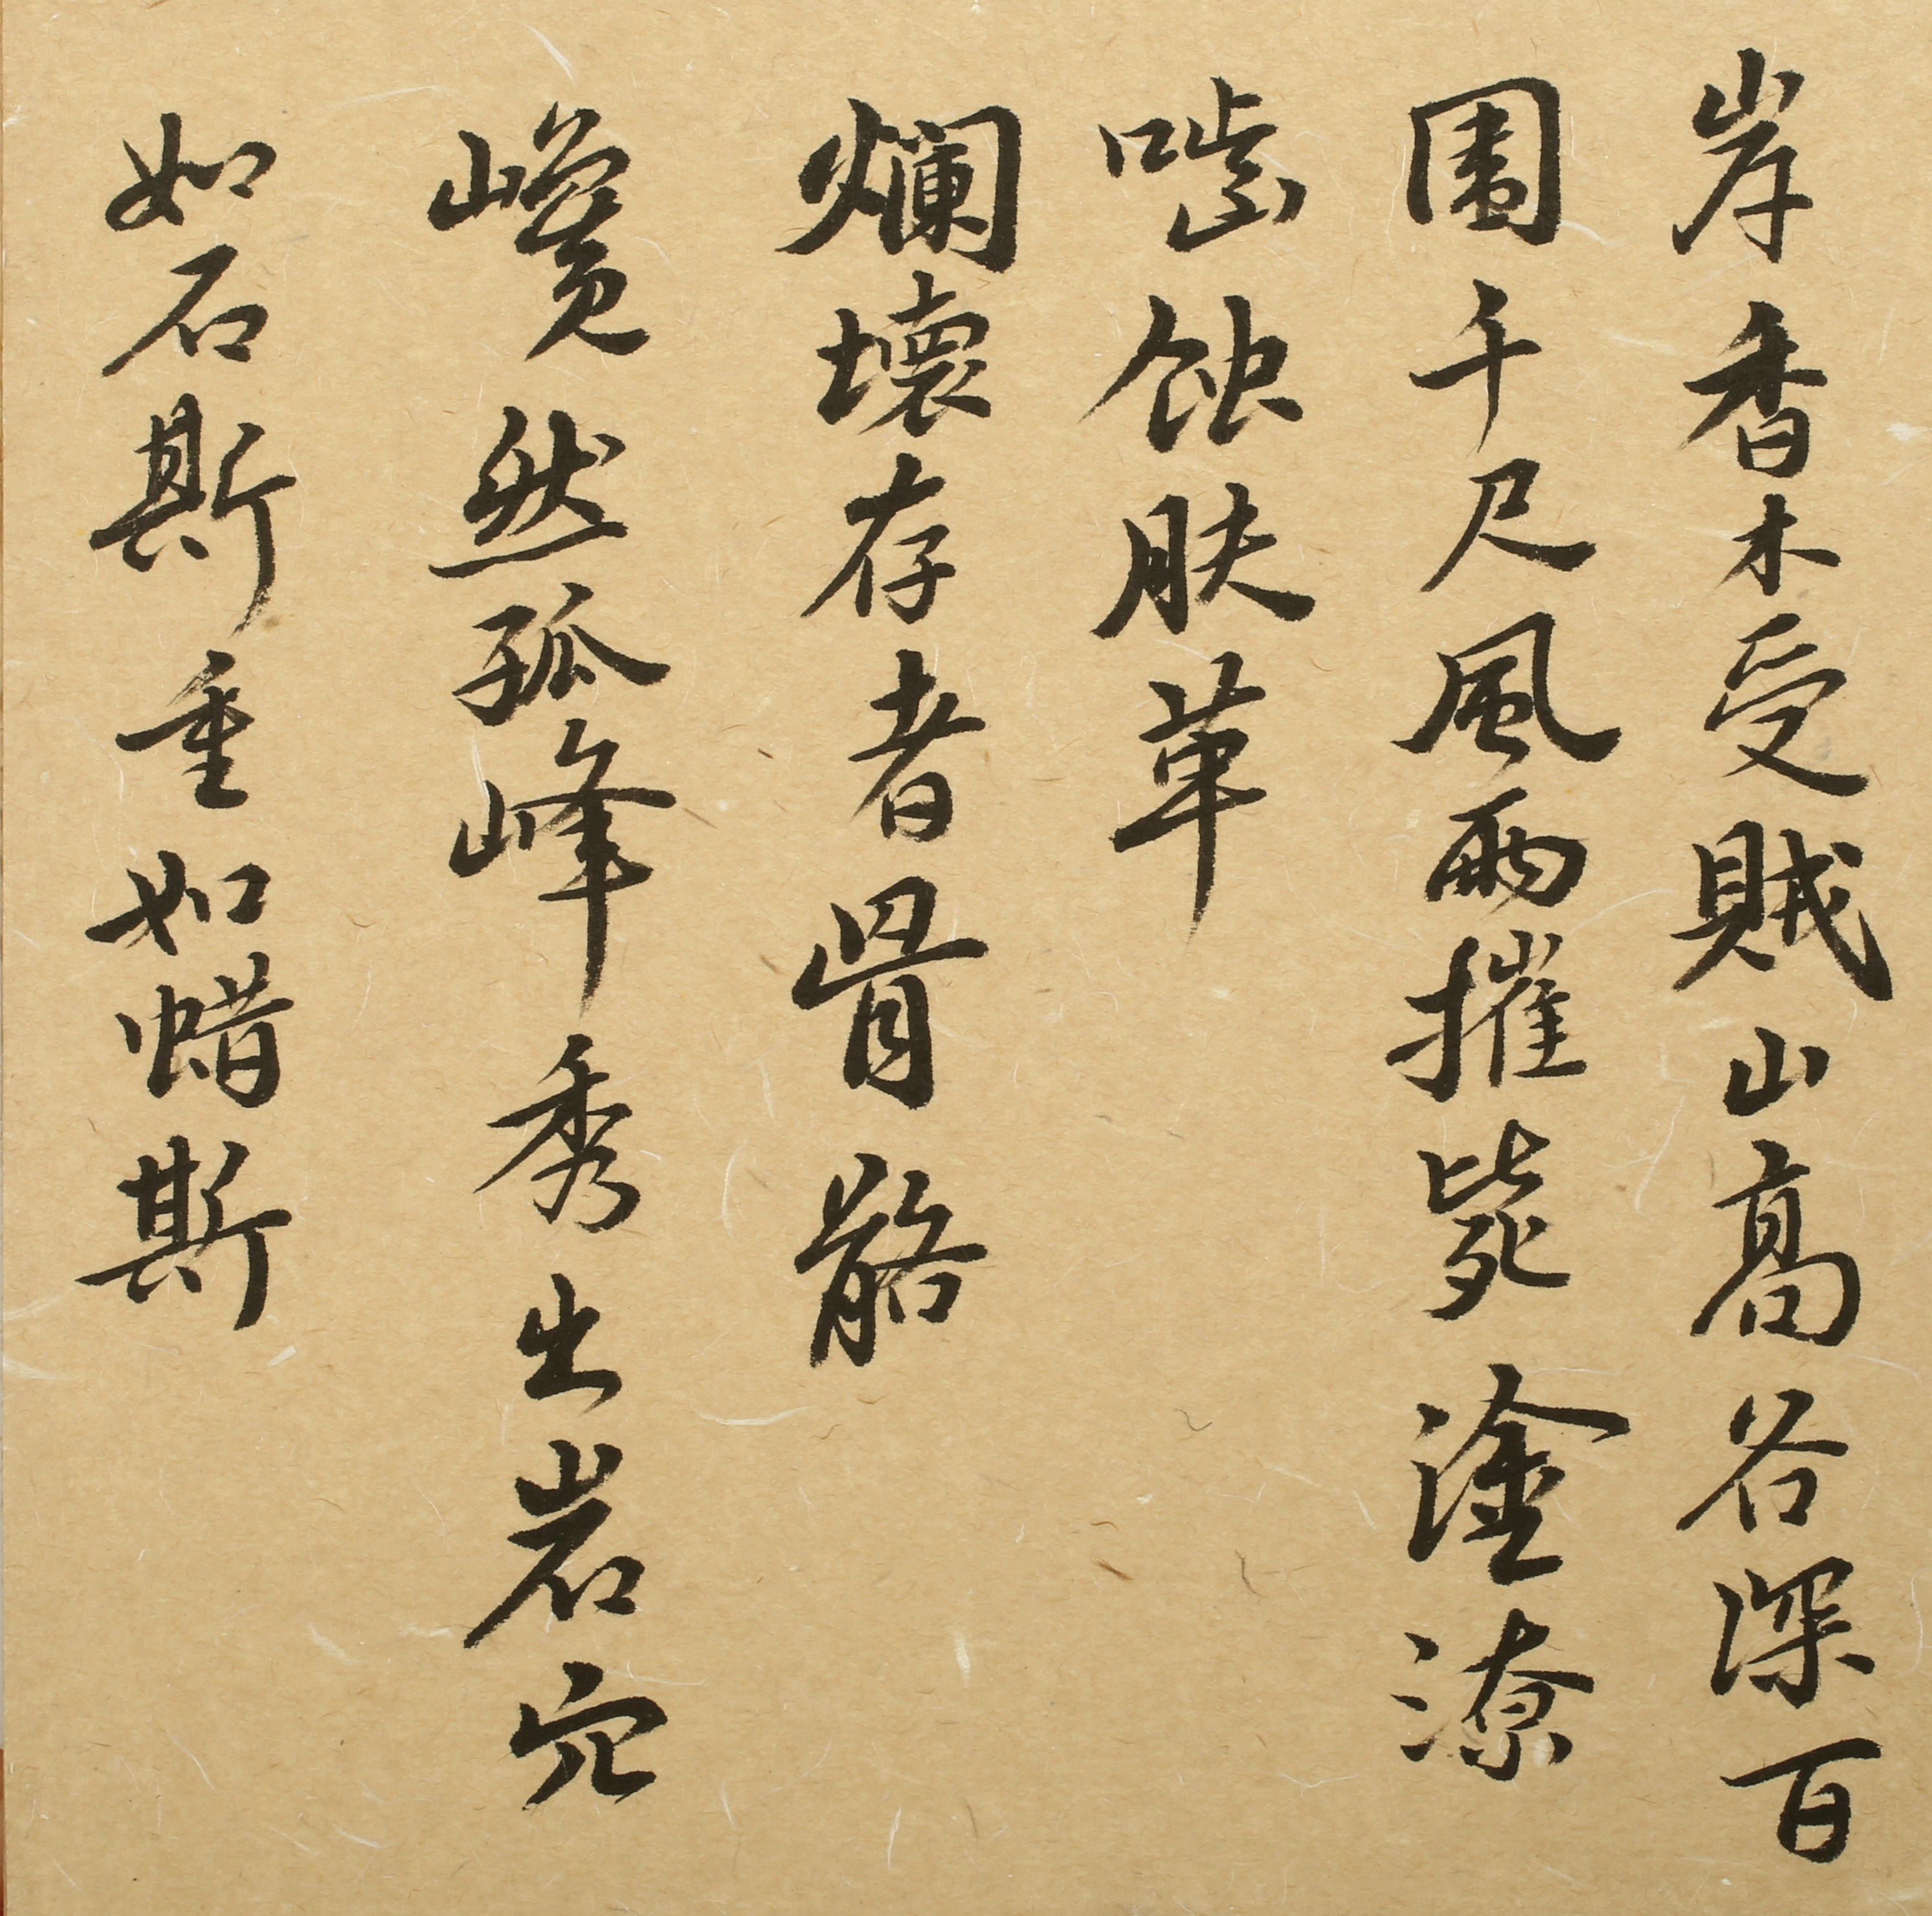 岸香木受賊山高谷深百
圍千尺風雨摧斃塗潦
嚙蝕肤革
爛壞存者骨骼
巉然孤峰秀出岩穴
如石斯重如蜡斯